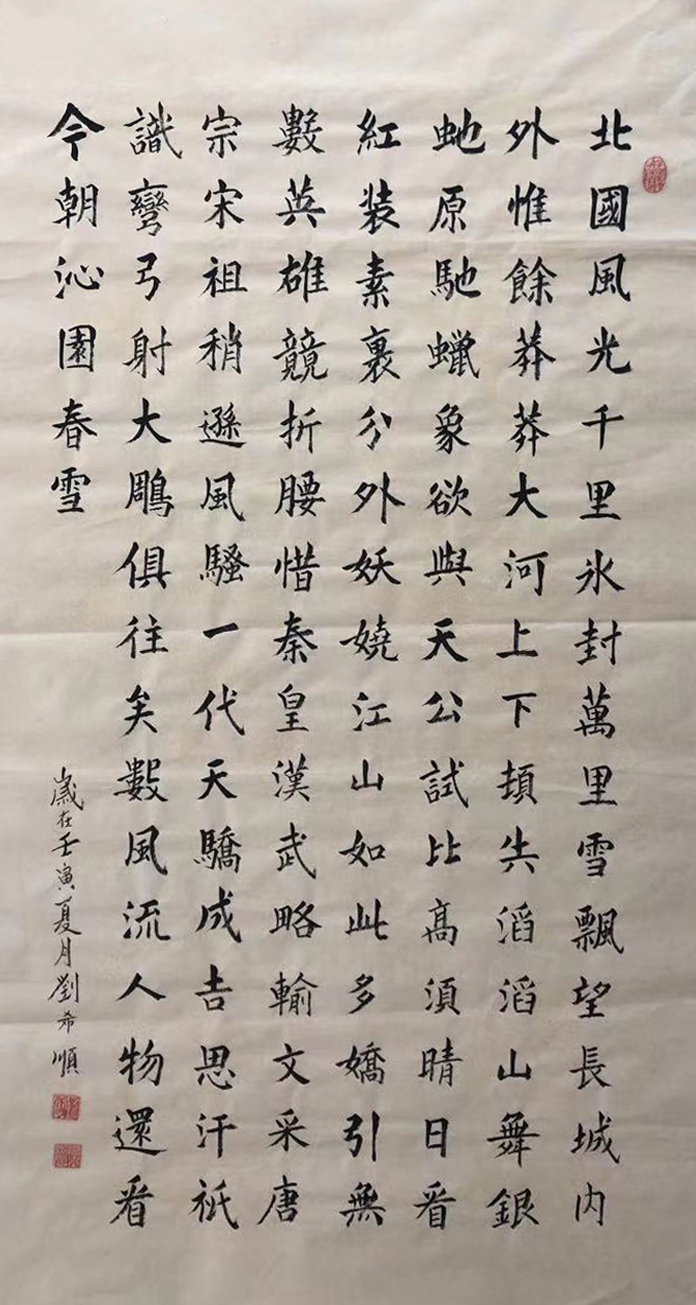 北國風光千里氷封萬里雪飄望長城内
外惟餘莽莽大河上下頓失滔滔山舞銀
虵原馳蠟象欲與天公試比高須晴日看
紅装素裹分外妖嬈江山如此多嬌引無
數英雄競折腰惜秦皇漢武略輸文采唐
宗宋祖稍遜風騷一代天驕成吉思汗祇
識彎弓射大鵰俱往矣數風流人物還看
今朝沁園春雪
歲在壬寅夏月劉希順